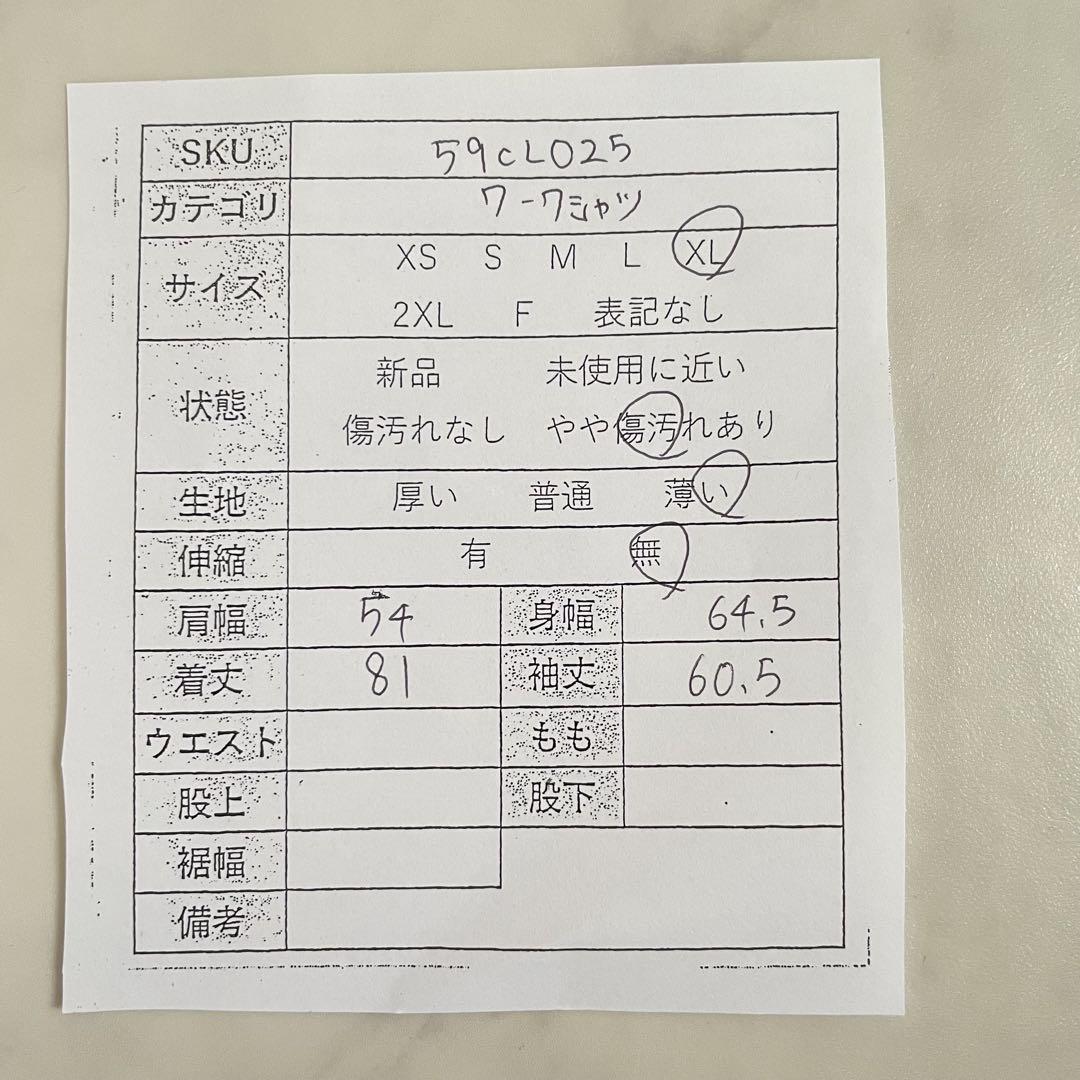 SKU 59CL025
カテゴリ ワークシャツ
サイズ XS S M L XL
2XL F 表記なし
状態 新品 未使用に近い
傷汚れなし やや傷汚れあり
生地 厚い 普通 薄い
伸縮 有 無
肩幅 54 身幅 64.5
着丈 81 袖丈 60.5
ウエスト もも
股上 股下
裾幅
備考